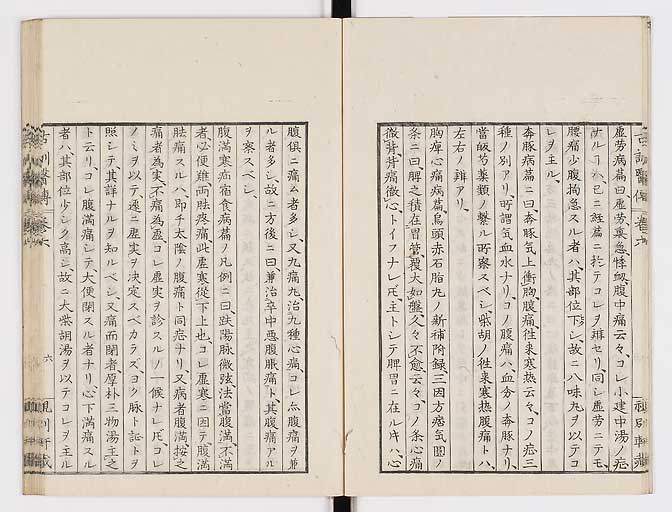 虚労病篇曰虚労裏急悸衂腹中痛云々コレ小建中湯ノ症
ナルコハ已ニ經篇ニ於テコレヲ辨セリ同シ虚労ニテモ
腰痛少腹拘急スル者ハ其部位下シ故ニ八味丸ヲ以テコ
レヲ主ル
奔豚病篇ニ曰奔豚気上衝胸腹痛徃来寒热云々コノ症三
種ノ別アリ所謂気血水ナリコノ腹痛ハ血分ノ奔豚ナリ
當皈芍薬類ノ繋ル所察スベシ柴胡ノ徃来寒热腹痛トハ
左右ノ辨アリ
胸痺心痛病篇烏頭赤石脂丸ノ新補附録三因方痞気圓ノ
条ニ曰脾之積在胃管覆大如盤久々不愈云々コノ条心痛
徹背背痛徹心トイフナレ𪜈主トシテ脾胃ニ在ル片ハ心
腹俱ニ痛ム者多シ又九痛丸治九種心痛コレ亦腹痛ヲ兼
ル者多シ故ニ方後ニ曰兼治卒中悪腹脹痛ト其腹痛アル
ヲ察スベシ
腹満寒疝宿食病篇ノ凡例ニ曰趺陽脉微弦法當腹満不満
者必便難両胠疼痛此虚寒從下上也コレ虚寒ニ因テ腹満
胠痛スルハ即チ太陰ノ腹痛ト同症ナリ又病者腹満按之
痛者為実不痛為虚コレ虚実ヲ診スルノ一候ナレ𪜈コレ
ノミヲ以テ遽ニ虚実ヲ决定スベカラズヨク脉ト証トヲ
照シテ其詳ナルヲ知ルベシ又痛而閉者厚朴三物湯主之
ト云リコレ腹満痛シテ大便閉スル者ナリ心下満痛スル
者ハ其部位少シク高シ故ニ大柴胡湯ヲ以テコレヲ主ル
六